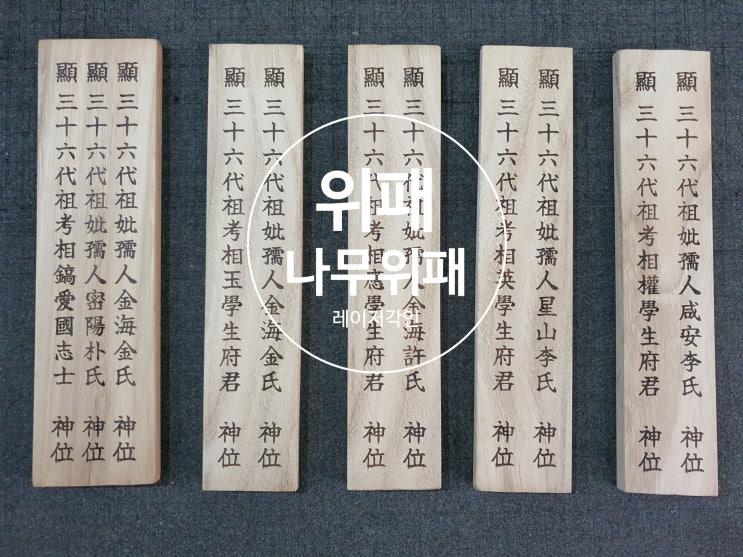 顯三十六代祖考相鎬愛國志士 神位
顯三十六代祖妣孺人密陽朴氏 神位
顯三十六代祖妣孺人金海金氏 神位
顯三十六代祖考相玉學生府君 神位
顯三十六代祖妣孺人金海金氏 神位
顯三十六代祖考相 學生府君 神位
顯三十六代祖妣孺人金海許氏 神位
顯三十六代祖考相英學生府君 神位
顯三十六代祖妣孺人星山李氏 神位
顯三十六代祖考相權學生府君 神位
顯三十六代祖妣孺人咸安李氏 神位
위패
나무위패
레이저각인